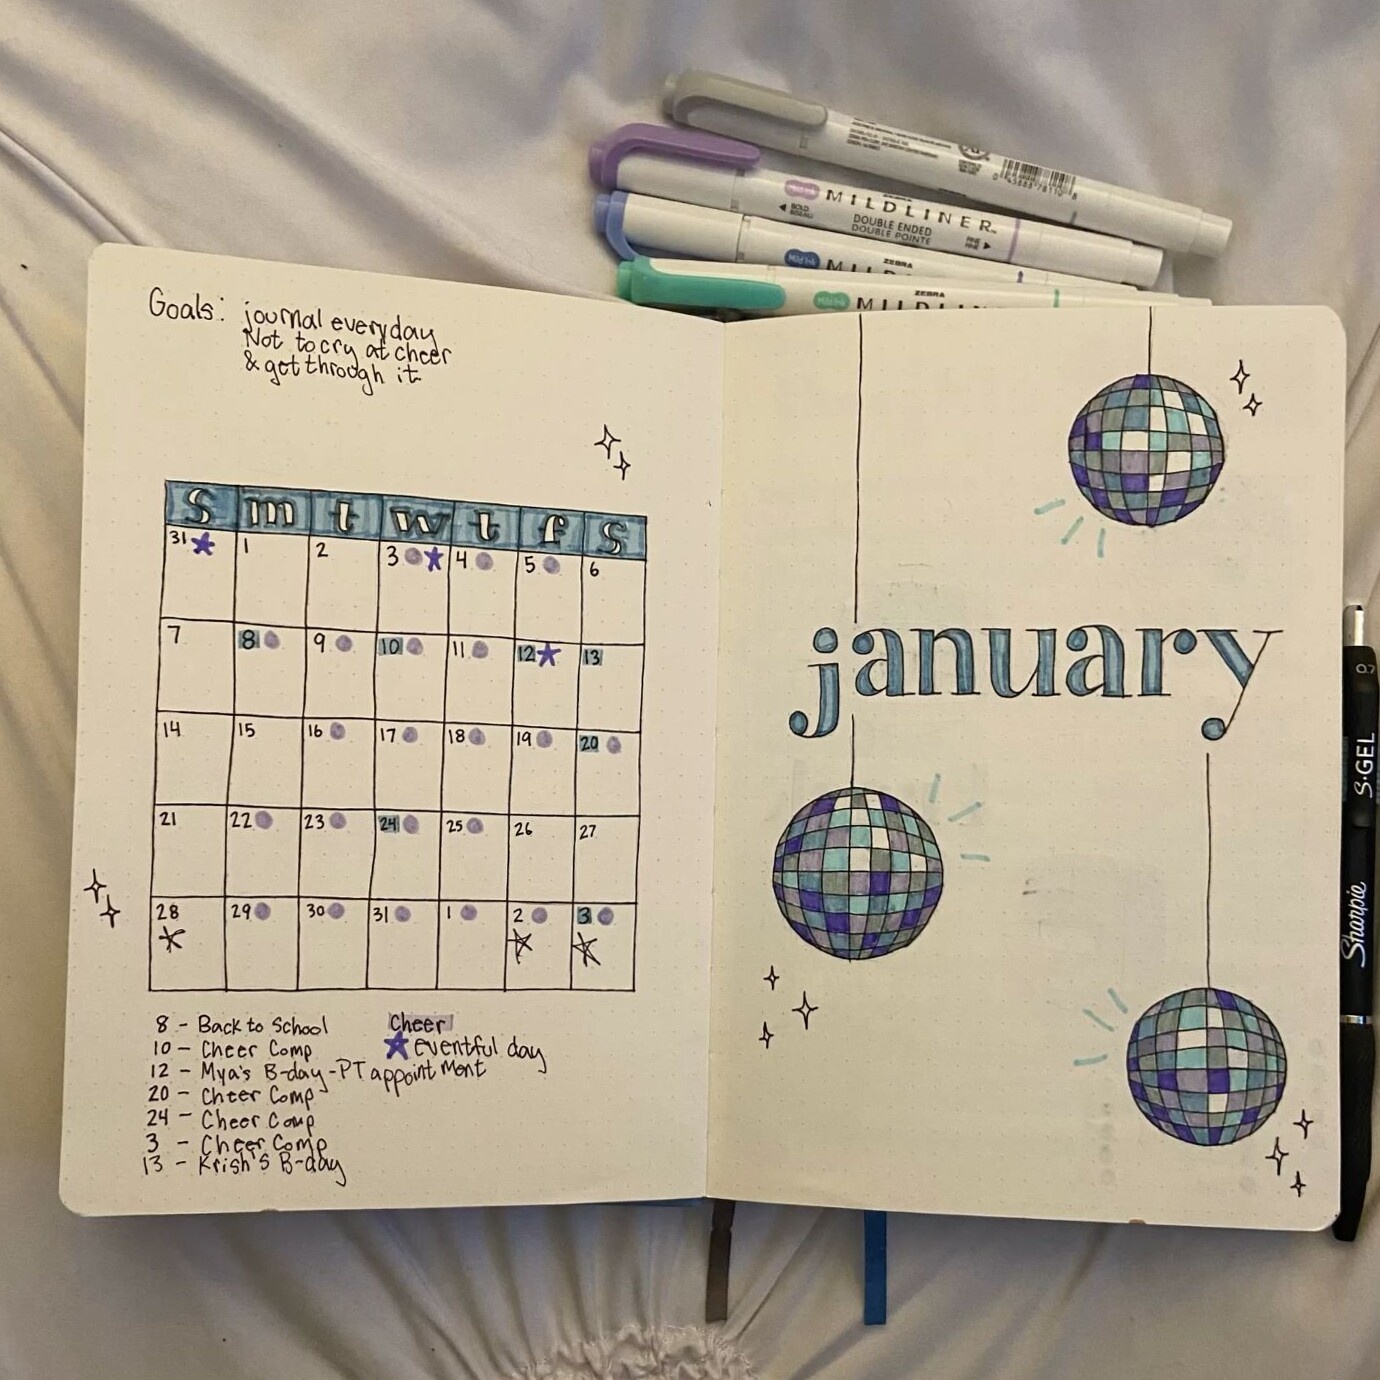 Goals: journal everyday
Not to cry at cheer
& get through it
s m t w t f s
31 1 2 3 4 5 6
7 8 9 10 11 12 13
14 15 16 17 18 19 20
21 22 23 24 25 26 27
28 29 30 31 1 2 3
8 - Back to School
10 - Cheer Comp
12 - Mya's B-day - PT appointment
20 - Cheer Comp
24 - Cheer Comp
3 - Cheer Comp
13 - Krish's B-day
Cheer
eventful day
january
0 45888 78110 8
MILDLINER
BOLD
DOUBLE ENDED
DOUBLE POINTE
FINE
ZEBRA
ZEBRA
MILDLIN
0.7
S·GEL
Sharpie